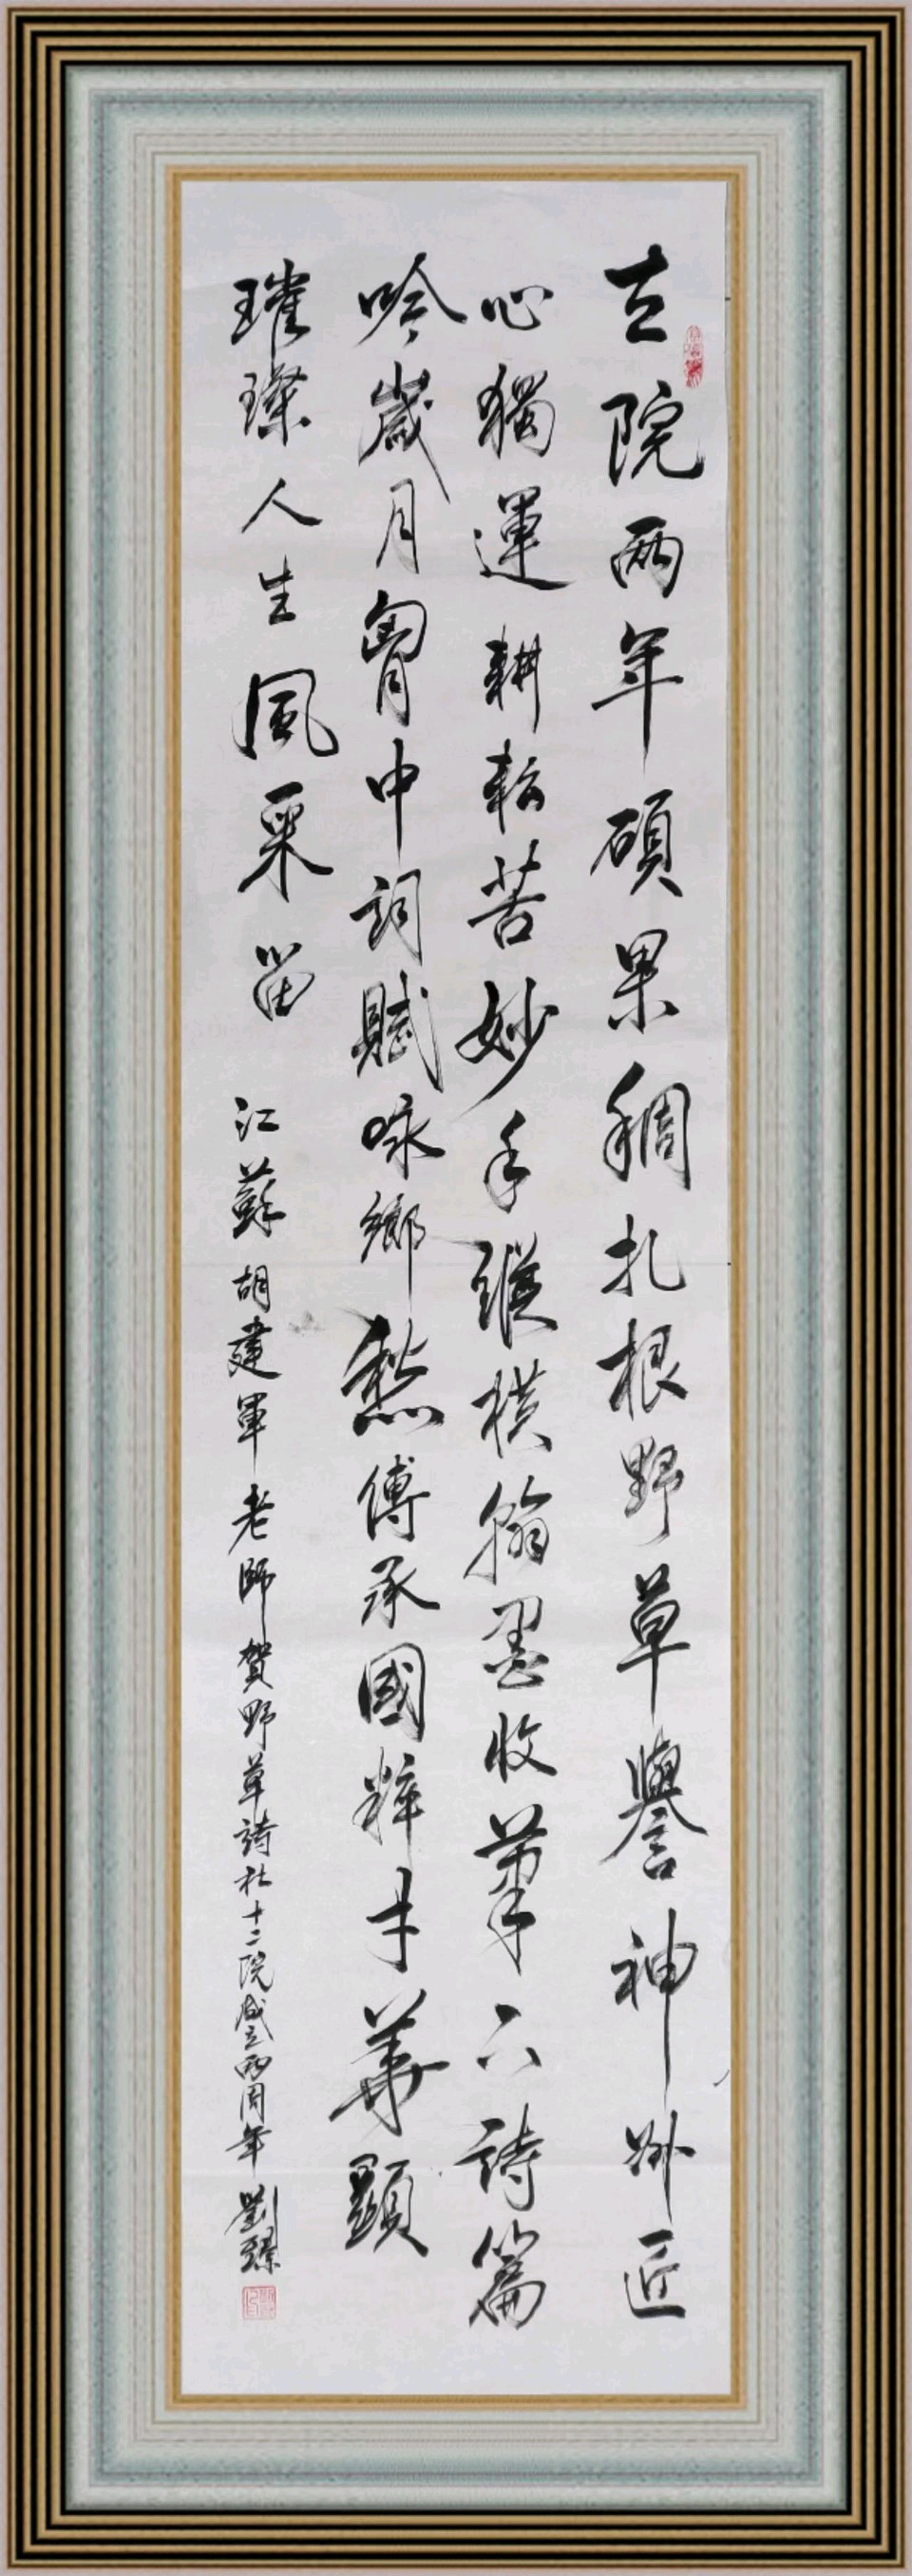 立院两年碩果稠扎根野草譽神州匠
心獨運耕耘苦妙手縱横翰墨收筆下詩篇
吟歲月胸中詞賦咏鄉愁傳承國粹才華顯
璀璨人生風采留
江蘇胡建軍老師賀野草詩社十二院成立兩周年 劉